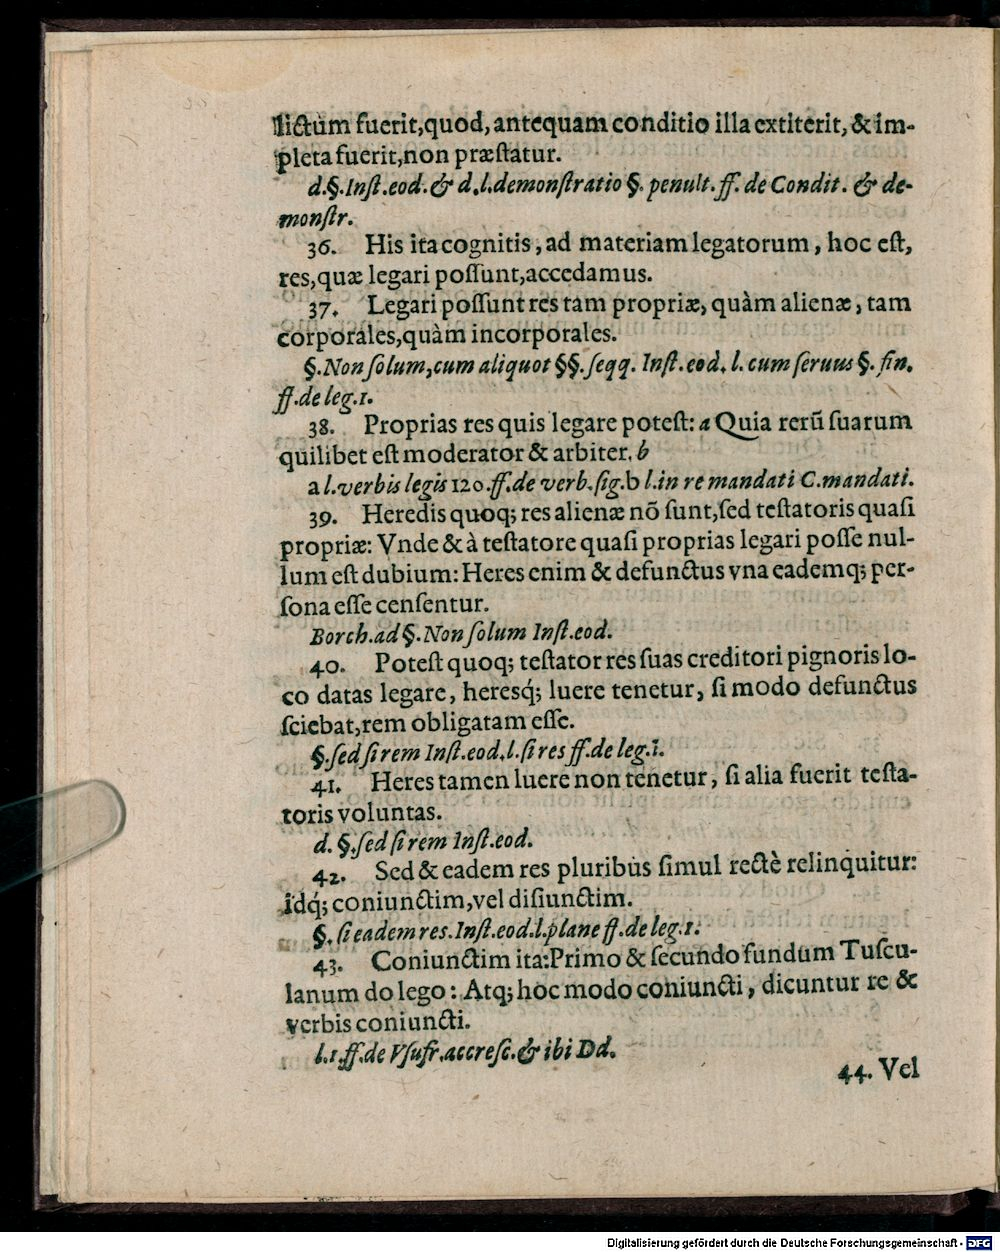 lictum fuerit,quod,antequam conditio illa extiterit,& im-
pleta fuerit,non præstatur.
d.§.Inst.eod.& d.l.demonstratio §. penult.ff. de Condit. & de-
monstr.
36. His ita cognitis, ad materiam legatorum, hoc est,
res,quæ legari possunt,accedamus.
37. Legari possunt res tam propriæ, quàm alienæ, tam
corporales,quàm incorporales.
§.Non solum,cum aliquot §§.seqq. Inst.eod. l. cum seruus §. fin.
ff.de leg.1.
38. Proprias res quis legare potest: a Quia rerũ suarum
quilibet est moderator & arbiter. b
a l.verbis legis 120.ff.de verb.sig.b l.in re mandati C.mandati.
39. Heredis quoq; res alienæ nõ sunt,sed testatoris quasi
propriæ: Vnde & à testatore quasi proprias legari posse nul-
lum est dubium: Heres enim & defunctus vna eademq; per-
sona esse censentur.
Borch.ad §.Non solum Inst.eod.
40. Potest quoq; testator res suas creditori pignoris lo-
co datas legare, heresq́; luere tenetur, si modo defunctus
sciebat,rem obligatam esse.
§.sed si rem Inst.eod.l.si res ff.de leg.1.
41. Heres tamen luere non tenetur, si alia fuerit testa-
toris voluntas.
d. §.sed si rem Inst.eod.
42. Sed & eadem res pluribus simul rectè relinquitur:
idq́; coniunctim,vel disiunctim.
§. si eadem res.Inst.eod.l.plane ff.de leg.1.
43. Coniunctim ita:Primo & secundo fundum Tuscu-
lanum do lego: Atq; hoc modo coniuncti, dicuntur re &
verbis coniuncti.
l.1.ff.de Vsufr.accresc.& ibi Dd.
44. Vel
Digitalisierung gefördert durch die Deutsche Forschungsgemeinschaft - DFG